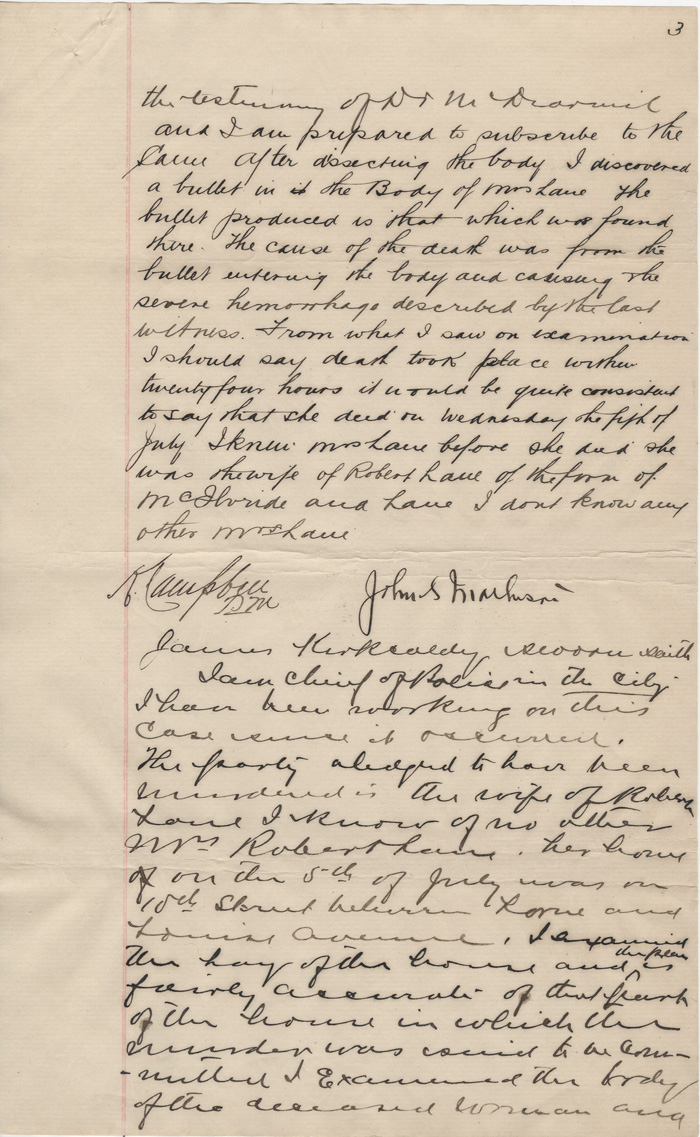 3
the testimony of Dr McDiarmid
and I am prepared to subscribe to the
same After dissecting the body I discovered
a bullet in it the Body of Mrs Lane The
bullet produced is that which was found
there. The cause of the death was from the
bullet entering the body and causing the
severe hemorrhage described by the last
witness. From what I saw on examination
I should say death took place within
twenty four hours it would be quite consistent
to say that she died on Wednesday the fifth of
July I knew Mrs Lane before she died she
was the wife of Robert Lane of the firm of
McIlvride and Lane I dont know any
other Mrs Lane
A. Campbell John S Matheson
PM
James Kirkcaldy sworn saith
I am Chief of Police in the city
I have been working on this
case since it occurred.
The party aledged to have been
murdered is the wife of Robert
Lane I know of no other
Mrs Robert Lane. her home
on the 5th of July was on
10th Street between Lorne and
Louise Avenue. I examined
the plan
the lay of the house and is
fairly accurate of that part
of the house in which the
murder was said to be com-
-mitted I Examined the body
of the deceased woman and